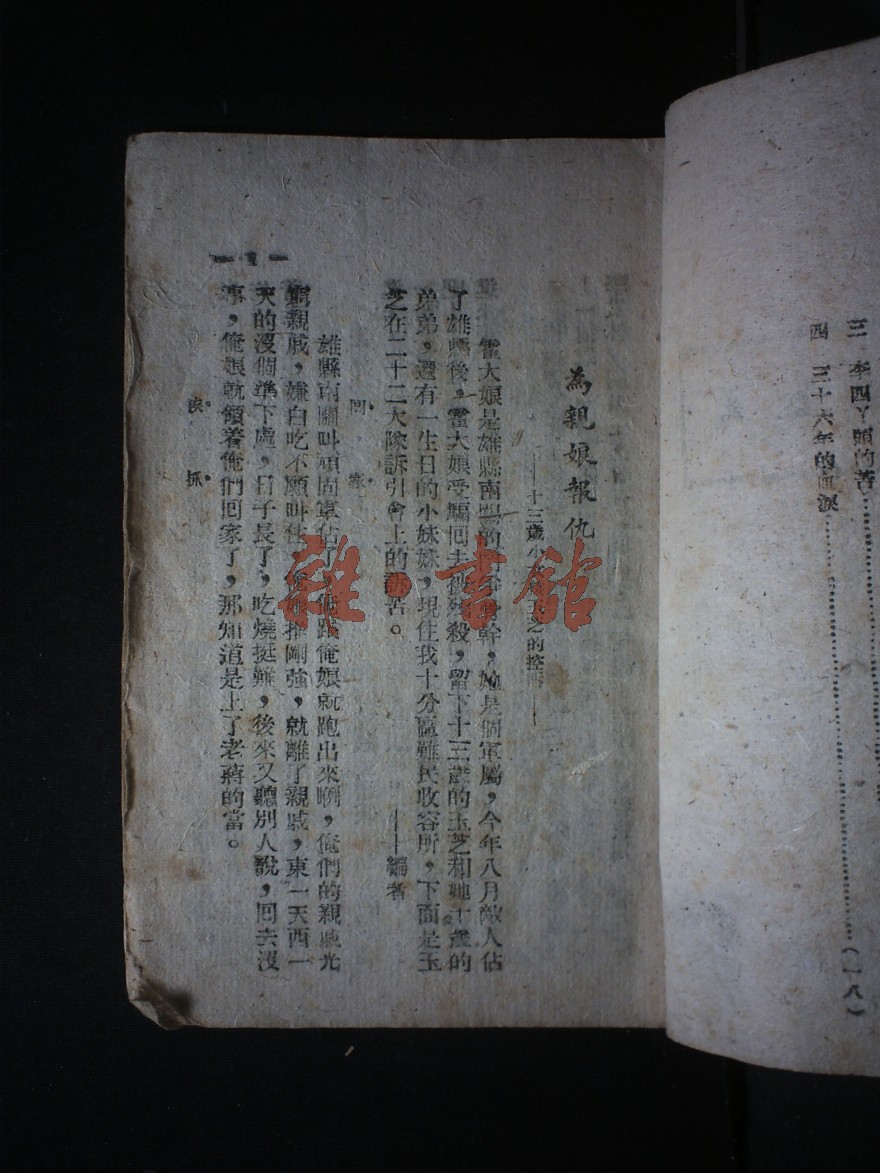 三 李四丫頭的苦
四 三十六年的血淚……(一八)
為親娘報仇
——十三歲小 玉芝的控
霍大娘是雄縣南關的 幹,她是個軍屬,今年八月敵人佔
了雄縣後,霍大娘受騙回去 殺,留下十三歲的玉芝和她十歲的
弟弟,還有一生日的小妹妹,現住我十分區難民收容所,下面是玉
芝在二十二大隊訴引會上的訴苦。
——編者
雄縣南關叫頑固軍佔了, 俺娘就跑出來咧,俺們的親戚光
窮親戚,嫌白吃不願叫住,俺娘挺剛強,就離了親戚,東一天西一
天的沒個準下處,日子長了,吃燒挺難,後來又聽別人說,回去沒
事,俺娘就領着俺們回家了,那知道是上了老蔣的當。
回家
挨抓
— 1 —
雜·書館